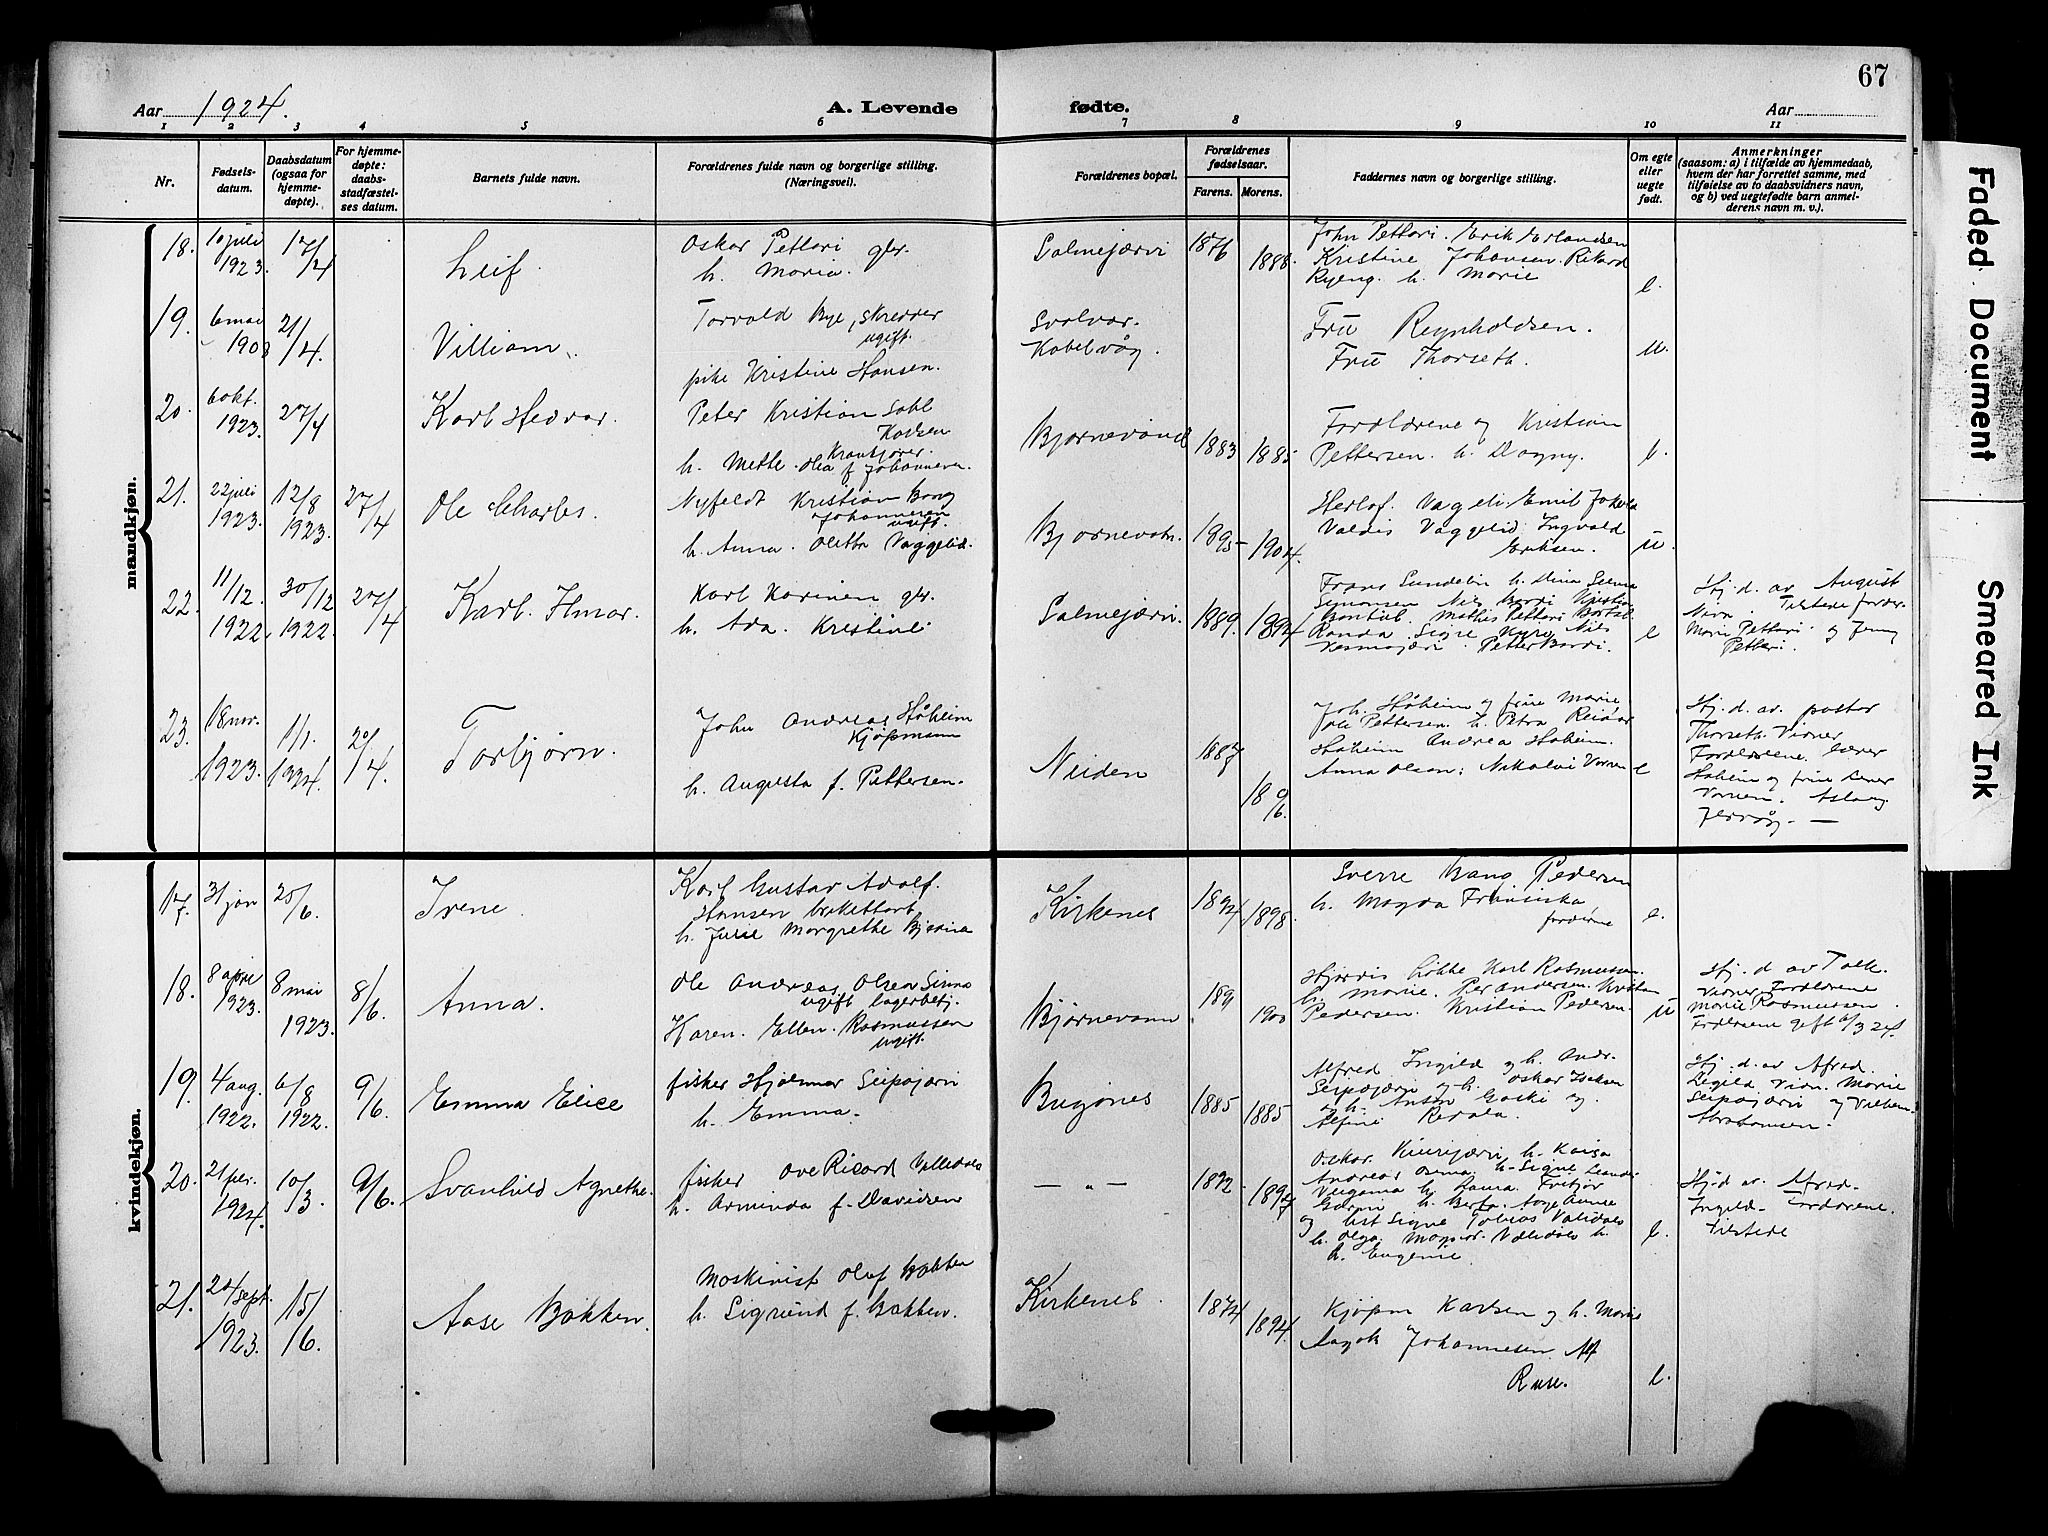 67
Aar 1924.
A. Levende fødte.
Aar
1 2 3 4 5 6 7 8 9 10 11
Nr.
Fødsels-
datum.
Daabsdatum
(ogsaa for
hjemme-
døpte).
For hjemme-
døpte:
daabs-
stadfæstel-
ses datum.
Barnets fulde navn.
Forældrenes fulde navn og borgerlige stilling.
(Næringsvei).
Forældrenes bopæl.
Forældrenes
fødselsaar.
Farens. Morens.
Faddernes navn og borgerlige stilling.
Om egte
eller
uegte
født.
Anmerkninger
(saasom: a) i tilfælde av hjemmedaab,
hvem der har forrettet samme, med
tilføielse av to daabsvidners navn,
og b) ved uegtefødte barn anmel-
derens navn m. v.).
mandkjøn.
18. 10 juli 1923. 17/4
Leif.
Oskar Pettari gbr.
h. Maria.
Salmejærvi 1876 1888.
John Pettari. Erik Erlandsen
Kristine Johansen. Rikard
Ryeng. h. Marie
e.
19. 6 mai 1908 21/4.
Villiam.
Torvald Bye, skredder
ugift.
pike Kristine Hansen.
Svolvær.
Kabelvåg.
Fru Reynholdsen.
Fru Thorseth.
u.
20. 6 okt. 1923. 27/4
Karl Hedvar.
Peter Kristian
h. Mette. Olea f Johannesen.
Bjørnevand 1883 1885
Forældrene og Kristian
Pettersen. h. Dagny.
e.
21. 22 juli 1923. 12/8 1923. 27/4
Ole Charles.
Nyfeldt Kristian Bang
Johannesen
ugift.
h. Anna. Oletta Vaggelid.
Bjørnevatn. 1895 1904.
Herlof. Emil
Valdis Vaggelid. Ingvald
Eriksen.
u.
22. 11/12. 1922. 30/12 1922. 27/4
Karl. Ilmar.
Karl Karinen gbr.
h. Ada. Kristine
Salmejærvi. 1889. 1894
Frans Sundelin h. Dina
Simonsen Nils Bordi
Mathis Pettari
Randa. Signe Nils
Petter Bordi.
e
Hj. d. av August
Niva. Tilstede fader.
Marie Pettari og Jenny
Pettari.
23. 18 nov. 1923. 1/1. 1924. 20/4.
Torbjørn.
John Andreas Høheim
Kjøpmann
h. Augusta f. Pettersen.
Neiden 1887 1896.
Joh. Høheim og frue Marie
Pettersen. h. Petra Reidar
Høheim Andrea Høheim.
Anna Olsen.
e
Hj. d. av. pastor
Thorseth. Vidner
Forældrene. Lærer
Høheim og frue Lærer
Aslaug
kvindekjøn.
17. 31 jan 25/6.
Irene.
Karl Gustav Adolf.
Hansen
h. Julie Margrethe
Kirkenes 1894 1898.
Sverre Bang Pedersen
h. Magda Fransiska
e.
18. 8 april 1923. 8 mai 1923. 8/6
Anna.
Ole Andreas Olsen
ugift lagerbetj.
Karen. Ellen. Rasmussen
ugift.
Bjørnevann 1891 1900
Hjørdis Løkke Karl Rasmussen.
h. Marie. Per Andersen. Kristian
Pedersen. Kristian Pedersen.
u
Hj. d av
Vidner Forældrene
Marie Rasmussen
Forældrene gift 6/3 24.
19. 4 aug. 1922. 6/8 1922. 9/6.
Emma Elise
fisker Hjalmar Seipäjærvi
h. Emma.
Bugønes 1885 1885
Alfred Ingilæ og h. Andr.
Seipäjærvi og h. Oskar
og h. Anton og
Alfine
Hj. d. av Alfred.
Ingilæ Vidn. Marie
Seipäjærvi og
Abrahamsen.
20. 21 1924. 10/3. 9/6.
Svanhild Agnethe.
fisker Ove Ricard Valledals
h. Arminda f. Davidsen
— „ — 1892 1897
Oskar. h. Kaisa
Andreas h. Signe
h. Laura. Fritjof
h. Berta. Aage
og Signe Tobias Valledals
h. Olga. Valledals h.
h. Eugenie.
e.
Hj. d. av. Alfred.
Ingilæ. Forældrene.
tilstede
21. 24 sept. 1923. 15/6.
Aase Bakken.
Maskinist Olaf Bakken
h. Sigrund f. Bakken.
Kirkenes. 1874 1894.
Kjøpm Karlsen og h. Marie
Johannesen. Alf
e.
Faded Document
Smeared Ink